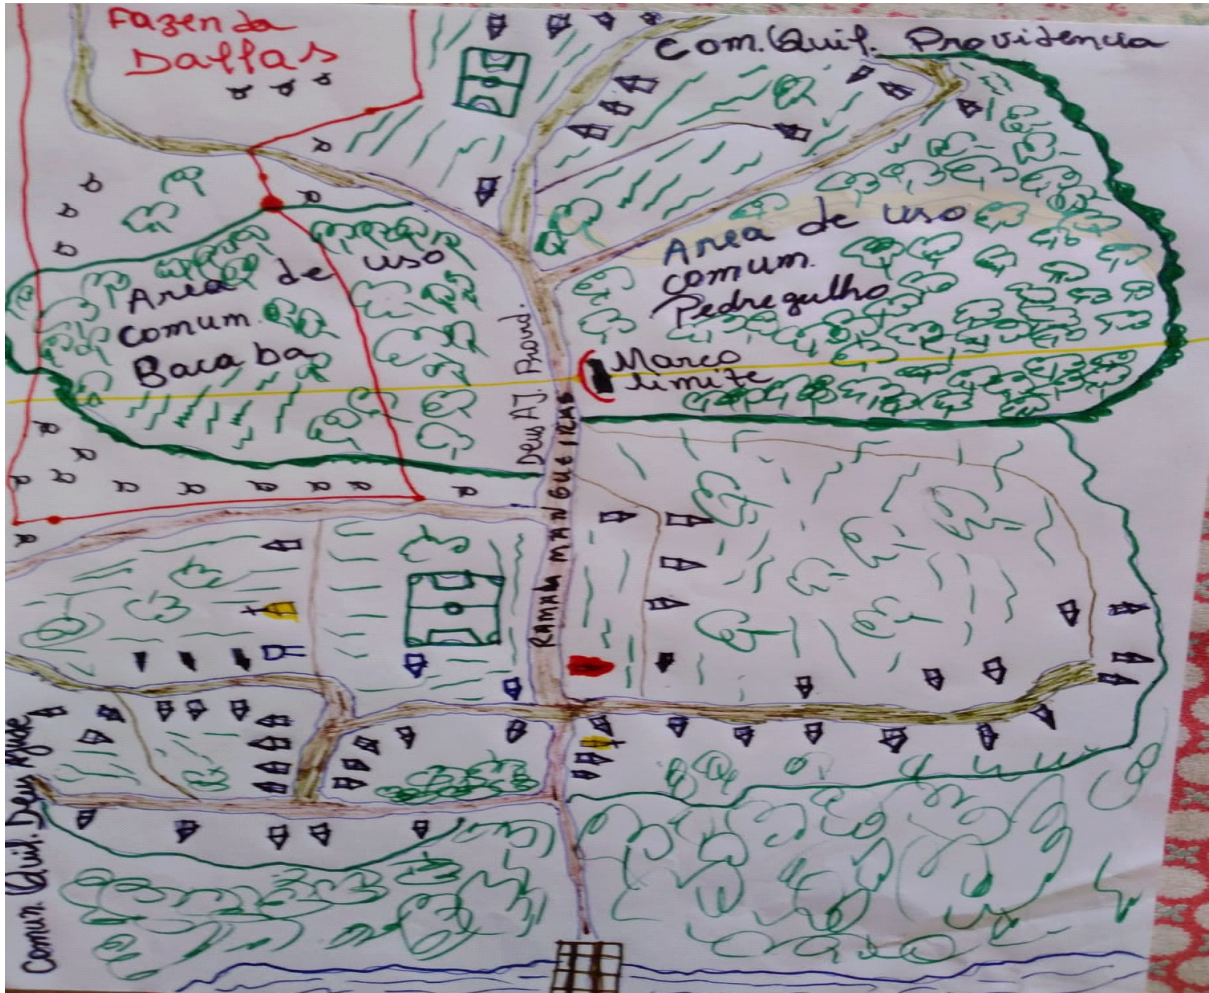 Fazenda
Dallas
Com. Quil. Providencia
Area de uso
comum
Pedregulho
Area de uso
comum.
Bacaba
Marco
limite
Deus AJ. Provid.
RAMAL MANGUEIRAS
Comun. Quil. Deus Ajude